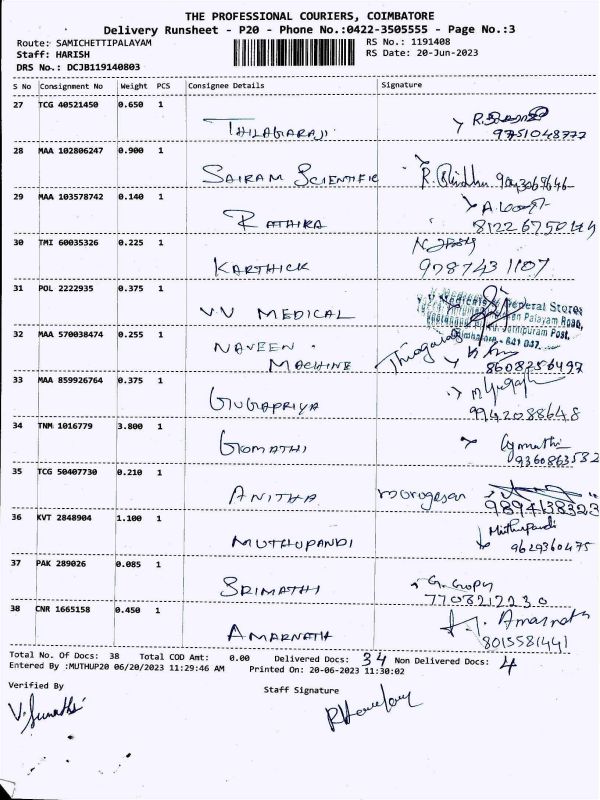 THE PROFESSIONAL COURIERS, COIMBATORE
Delivery Runsheet - P20 - Phone No.:0422-3505555 - Page No.:3
Route: SAMICHETTIPALAYAM RS No.: 1191408
Staff: HARISH RS Date: 20-Jun-2023
DRS No.: DCJB119140803
S No Consignment No Weight PCS Consignee Details Signature
27 TCG 40521450 0.650 1
THILAGARAJ.
9751048777
28 MAA 102806247 0.900 1
SAIRAM SCIENTIFIC R.
29 MAA 103578742 0.140 1
RATHIKA
30 TMI 60035326 0.225 1
KARTHICK 9787431107
31 POL 2222935 0.375 1
V.V MEDICAL General Stores
Palayam Road,
32 MAA 570038474 0.255 1
NAVEEN. Post,
MACHINE Thiagaraj 8608256497
33 MAA 859926764 0.375 1
GUGAPRIYA 9942088648
34 TNM 1016779 3.800 1
GOMATHI Gomathi
9360863532
35 TCG 50407730 0.210 1
ANITHA murogesan
9894138323
36 KVT 2848904 1.100 1
MUTHUPANDI Muthupandi
9629360475
37 PAK 289026 0.085 1
SRIMATHI G. Gopy
7708212230
38 CNR 1665158 0.450 1
AMARNATH Amarnath
8015581441
Total No. Of Docs: 38 Total COD Amt: 0.00 Delivered Docs: 34 Non Delivered Docs: 4
Entered By :MUTHUP20 06/20/2023 11:29:46 AM Printed On: 20-06-2023 11:30:02
Verified By Staff Signature